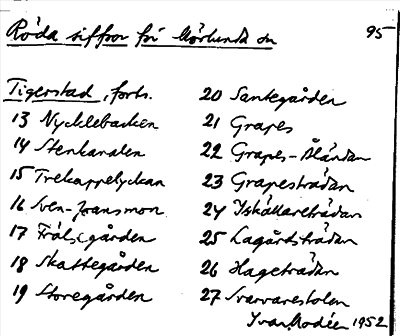 Röda siffror för Mörlunda sn 95
Tigerstad, forts.
13 Nycklebacken
14 Stenkanalen
15 Trekappelyckan
16 Sven-Jonsmon
17 Frälsegården
18 Skattegården
19 Storegården
20 Santegården
21 Grapes
22 Grapes-Åländan
23 Grapesträdan
24 Iskällareträdan
25 Lagårdsträdan
26 Hageträdan
27 Svarvarestolen
Ivar Modéer 1952